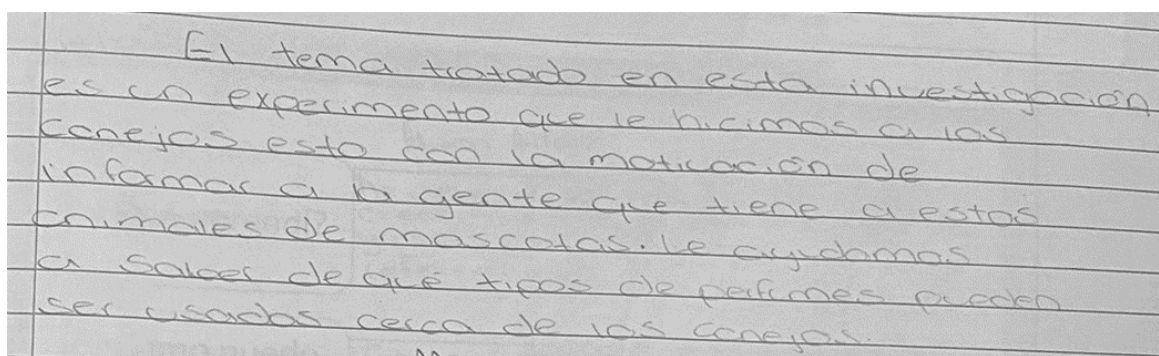 El tema tratado en esta investigación
es un experimento que le hicimos a los
conejos esto con la motivación de
informar a la gente que tiene a estos
animales de mascotas. Le ayudamos
a saber de qué tipos de perfumes pueden
ser usados cerca de los conejos.